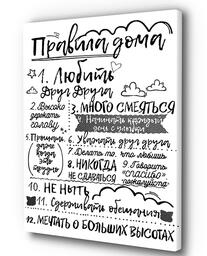 Правила дома
1. Любить
Друг Друга
2. Высоко
держать
голову
3. МНОГО СМЕЯТЬСЯ
4. Начинать каждый
день с улыбки
5. Прощать
даже
когда это
трудно
6. Уважать друг друга
7. Делать то, что любишь
8. НИКОГДА
НЕ СДАВАТЬСЯ
9. Говорить
"спасибо"
пожалуйста
10. НЕ НЫТЬ
11. Сдерживать обещания
12. МЕЧТАТЬ О БОЛЬШИХ ВЫСОТАХ